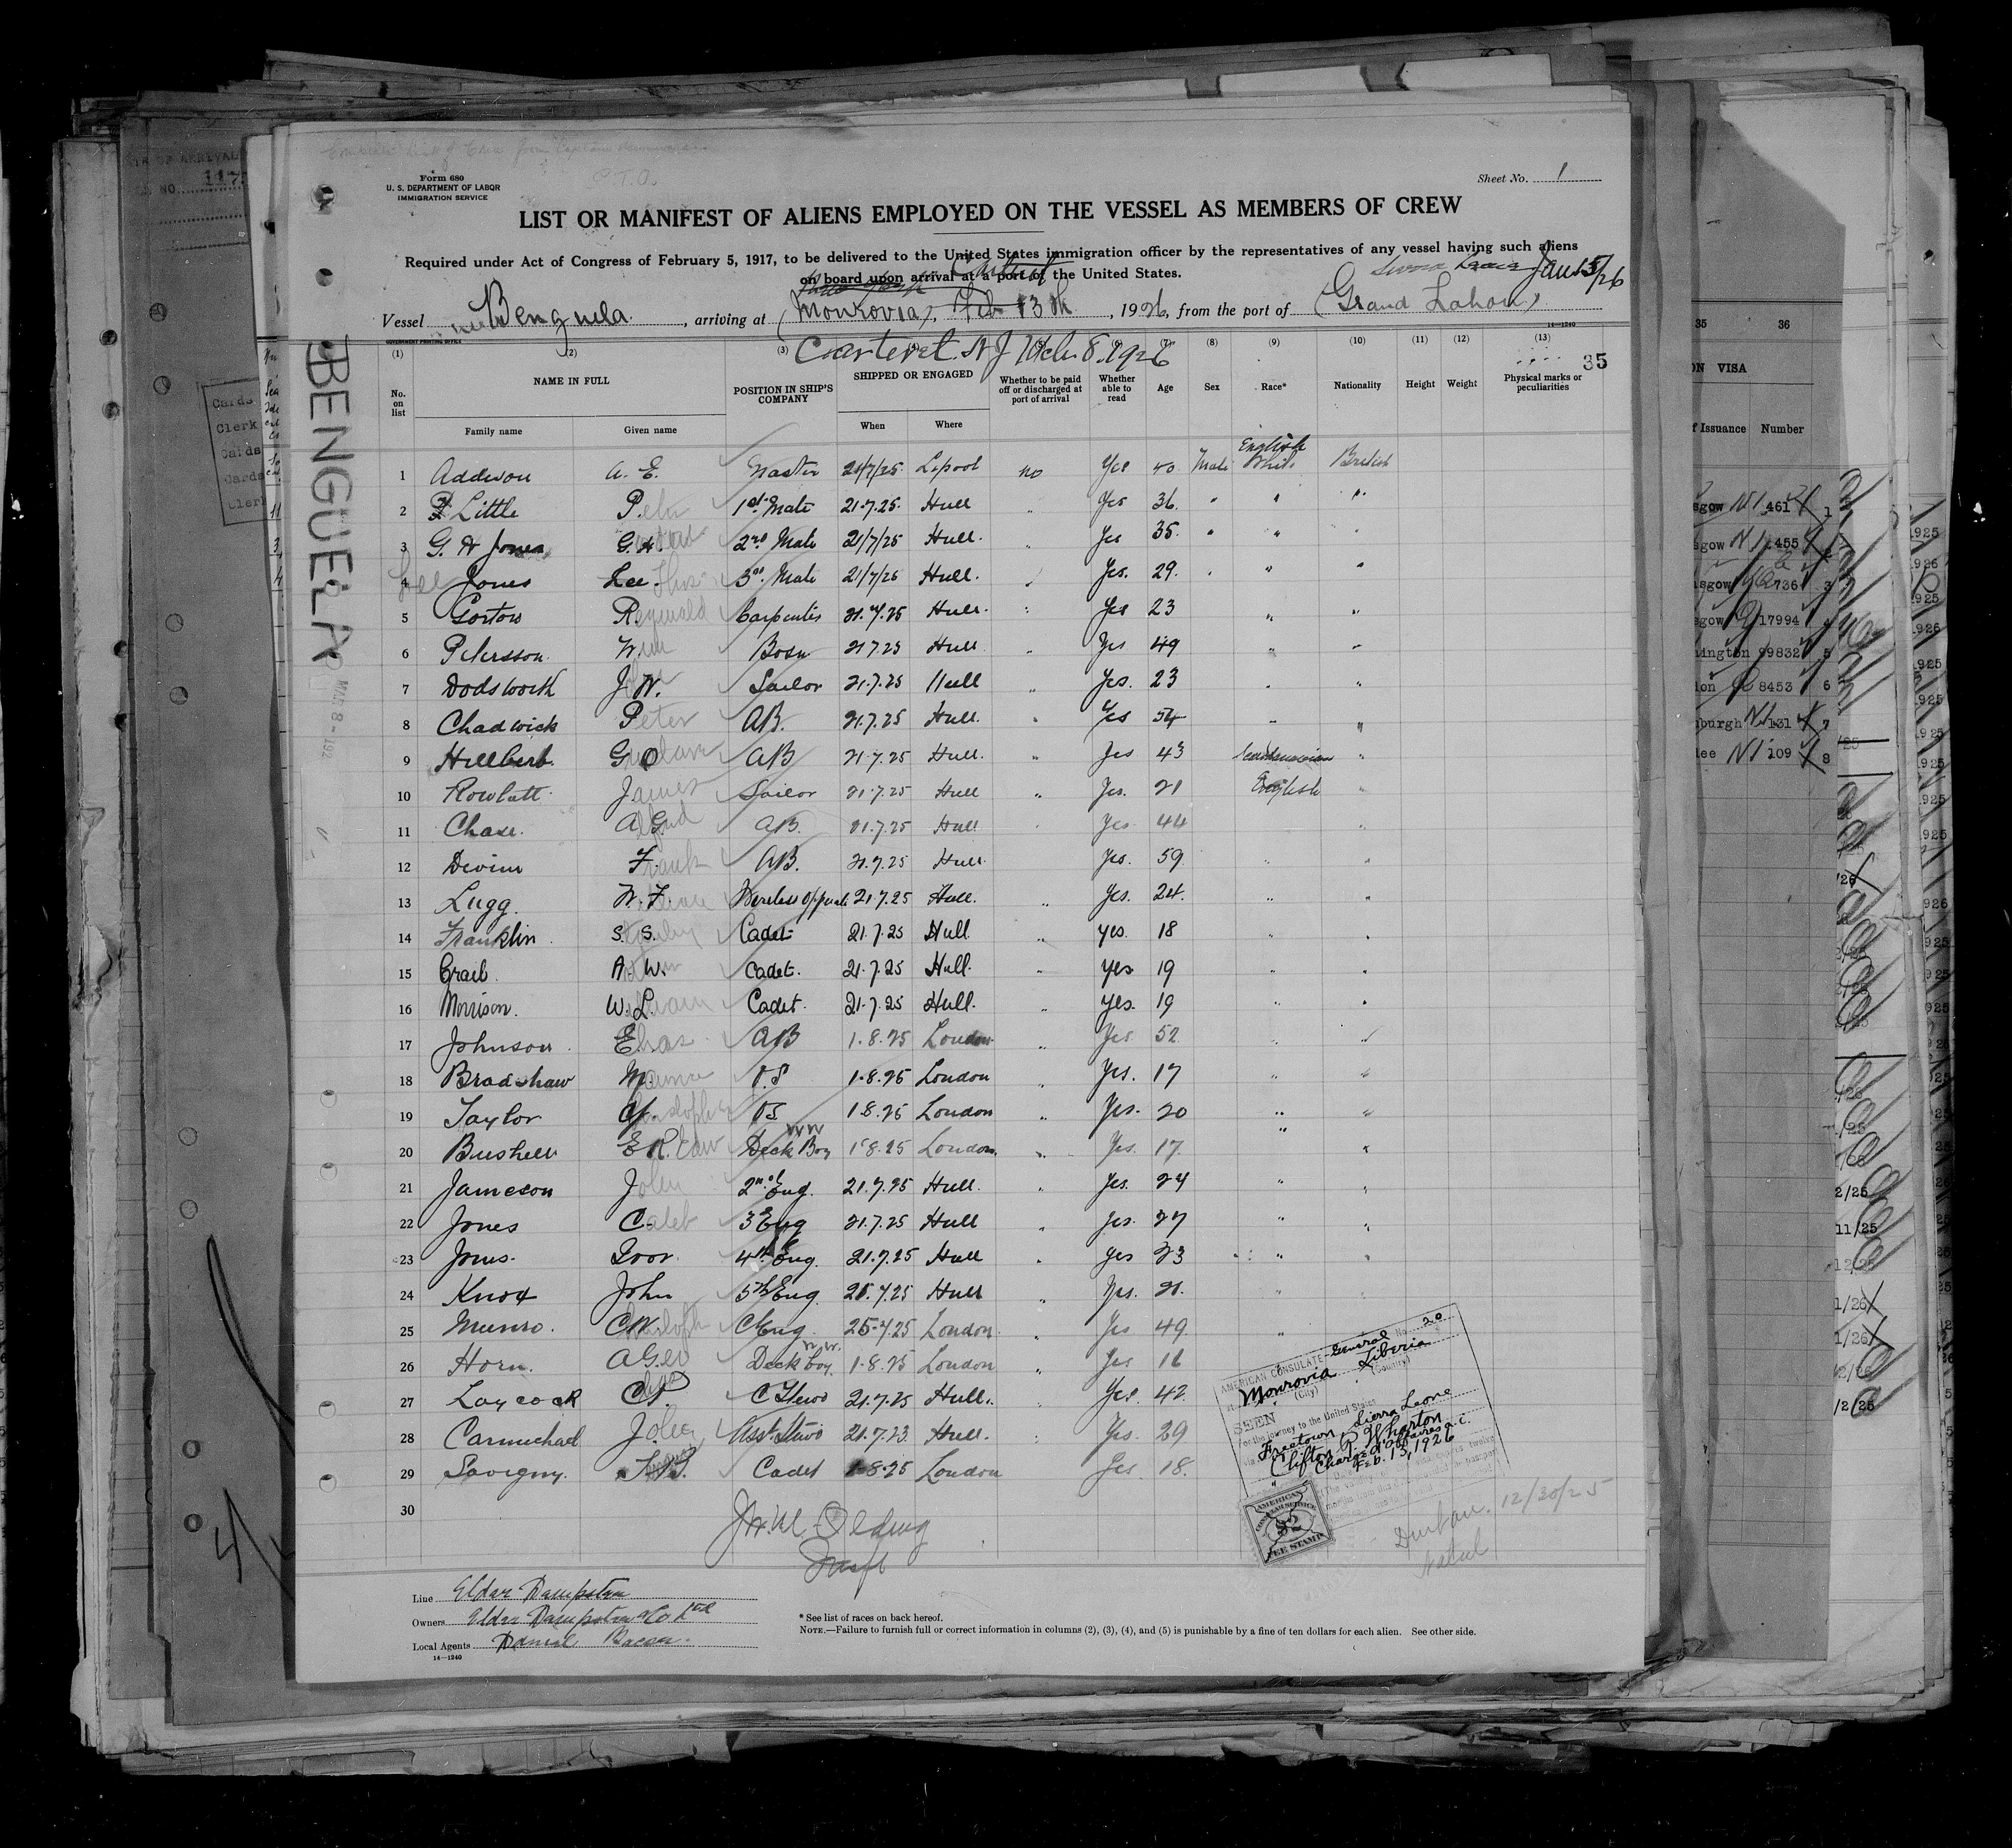 Form 680
U. S. DEPARTMENT OF LABOR
IMMIGRATION SERVICE
P.T.O.
Sheet No. 1
LIST OR MANIFEST OF ALIENS EMPLOYED ON THE VESSEL AS MEMBERS OF CREW
Required under Act of Congress of February 5, 1917, to be delivered to the United States immigration officer by the representatives of any vessel having such aliens
on board upon arrival at a port of the United States.
Jan 15/26
Vessel Benguela, arriving at (Monrovia), Feb 13th, 1926, from the port of (Grand Lahou)
14-1240
GOVERNMENT PRINTING OFFICE
Carteret. N J Mch. 8. 1926
35
(1) (2) (3) (8) (9) (10) (11) (12) (13)
No. on list NAME IN FULL POSITION IN SHIP'S COMPANY SHIPPED OR ENGAGED Whether to be paid off or discharged at port of arrival Whether able to read Age Sex Race* Nationality Height Weight Physical marks or peculiarities
Family name Given name When Where
BENGUELA
1 Addison A. E. Master 21/7/25 Lipool no Yes 40 Male English White British
2 Little Peter 1st Mate 21.7.25. Hull " Yes 36. " " "
3 G. H Jones G.H. 2nd Mate 21/7/25 Hull. " Yes 35. " " "
4 Jones Lee. Thos 3rd Mate 21/7/25 Hull. " Yes. 29. " " "
5 Gorton Reginald Carpenter 21.7.25 Hull. " Yes 23 " "
6 Petersson Wm Bosn 21 7 25 Hull " Yes 49 " "
7 Dodsworth J W. Sailor 21.7.25 Hull " Yes. 23 " "
8 Chadwick Peter AB. 21.7.25 Hull. " Yes 54 " "
9 Hillbert G O AB 21.7.25 Hull. " Yes 43 Scandanavian "
10 Rowlatt James Sailor 21.7.25 Hull " Yes. 21 English "
11 Chase. A G. AB. 21.7.25 Hull " Yes 44 "
12 Devine Frank AB. 21.7.25 Hull. Yes. 59 " "
13 Lugg. W. F. Wireless 21.7.25 Hull. " Yes. 24. " "
14 Franklin S. S. Cadet 21.7.25 Hull " yes. 18 " "
15 A. W. Cadet. 21.7.25 Hull. " yes 19 " "
16 Morrison. W. L. Cadet. 21.7.25 Hull. " yes. 19 " "
17 Johnson Chas AB 1.8.25 London " Yes 52 " "
18 Bradshaw M. O.S 1.8.25 London " Yes. 17 " "
19 Taylor Christopher OS 1.8.25 London " Yes. 20 " "
WW
20 Bushell E R. Deck Boy 1.8.25 London. " Yes. 17. " "
21 Jameson John 2nd Eng. 21.7.25 Hull. " Yes. 24 " "
22 Jones Caleb 3 Eng 21.7.25 Hull " Yes. 27 " "
23 Jones. Ivor. 4th Eng. 21.7.25 Hull " Yes 23 " "
24 Knox John 5th Eng. 21.7.25 Hull " Yes. 21. " "
25 Munro. C Eng. 25-7.25 London. " Yes 49. "
W W.
26 Horn. Deck Boy. 1.8.25 London " Yes 16 "
27 Laycock Chas C Stewd 21.7.25 Hull. " Yes. 42.
28 Carmichael John Asst. Stewd 21.7.23. Hull. " Yes. 29
29 Savigny. Cadet 1-8-25 London Yes 18.
30
AMERICAN CONSULATE-General No. 20
at Monrovia Liberia
(City) (Country)
SEEN
For the journey to the United States
via Freetown, Sierra Leone
Clifton R. Wharton
Chargé d'Affaires a.i.
Feb. 13, 1926
AMERICAN
CONSULAR SERVICE
$2
FEE STAMP
Durban. 12/30/25
Natal
Line Elder Dempster
Owners Elder Dempster & Co Ltd
Local Agents Daniel Bacon.
14-1240
* See list of races on back hereof.
NOTE.—Failure to furnish full or correct information in columns (2), (3), (4), and (5) is punishable by a fine of ten dollars for each alien. See other side.
Cards
Clerk
Cards
Cards
Clerk
35 36
VISA
f Issuance Number
461 1
455 2
736 3
17994 4
99832 5
8453 6
131 7
109 8